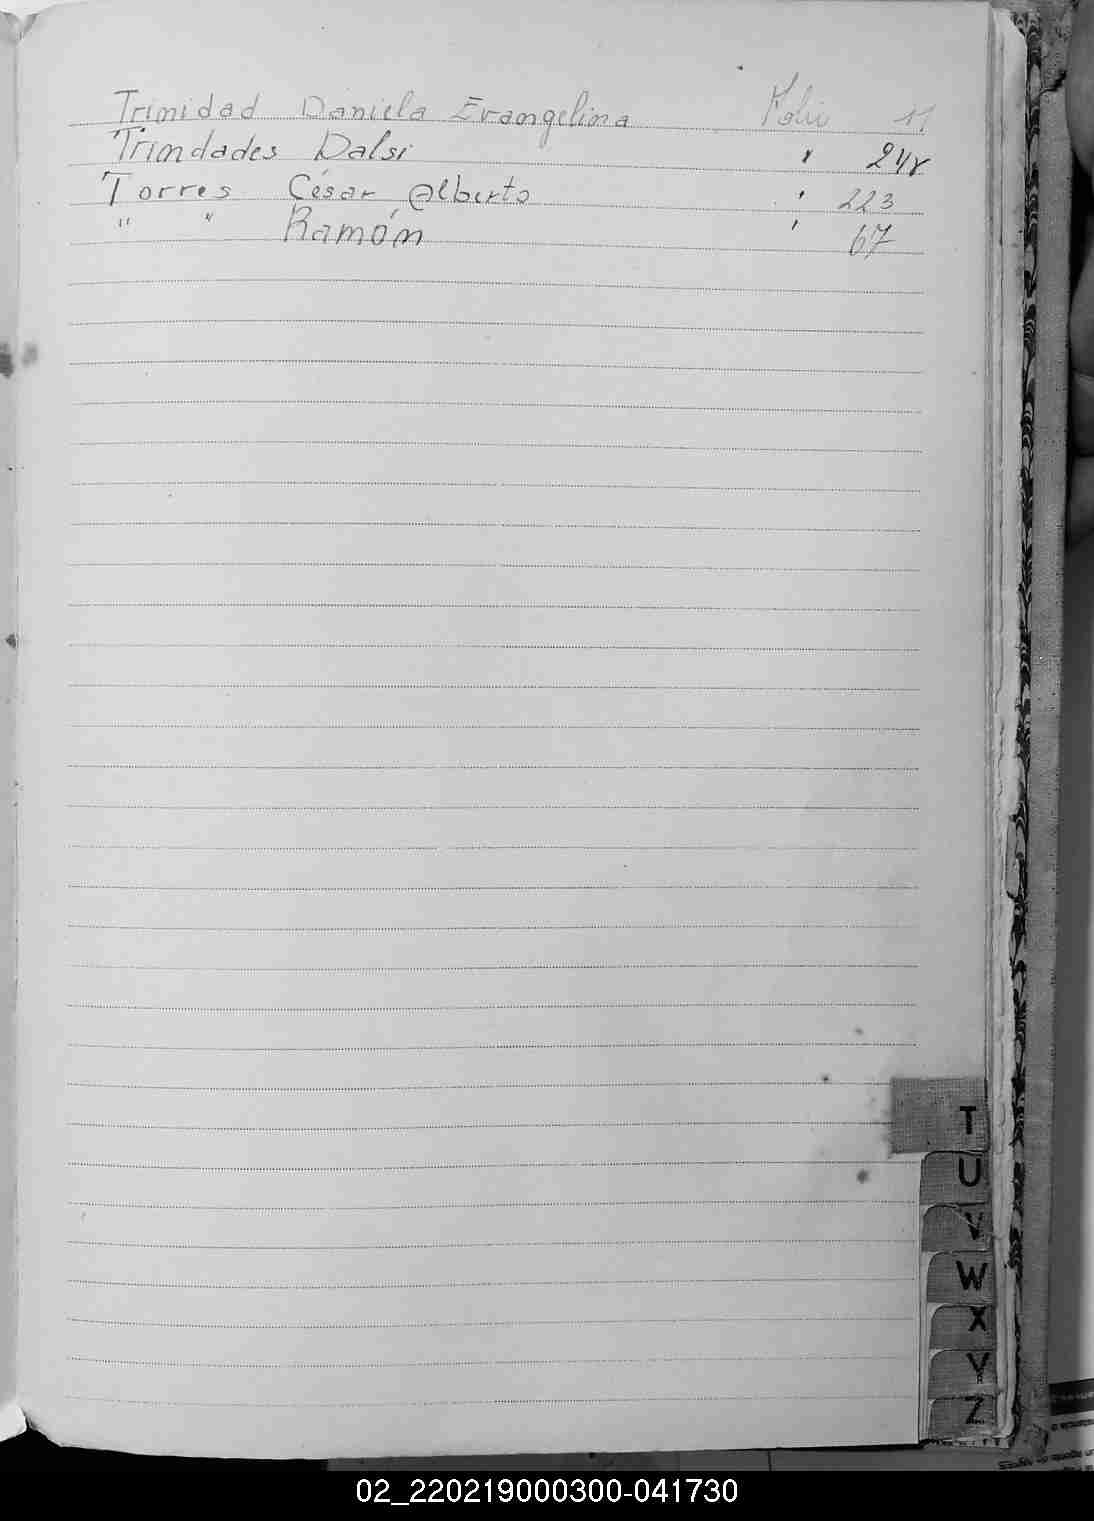 Trinidad Daniela Evangelina Folio 11
Trindades Dalsi "
Torres César Alberto " 223
" " Ramón " 67
T
U
V
W
X
Y
Z
02_220219000300-041730